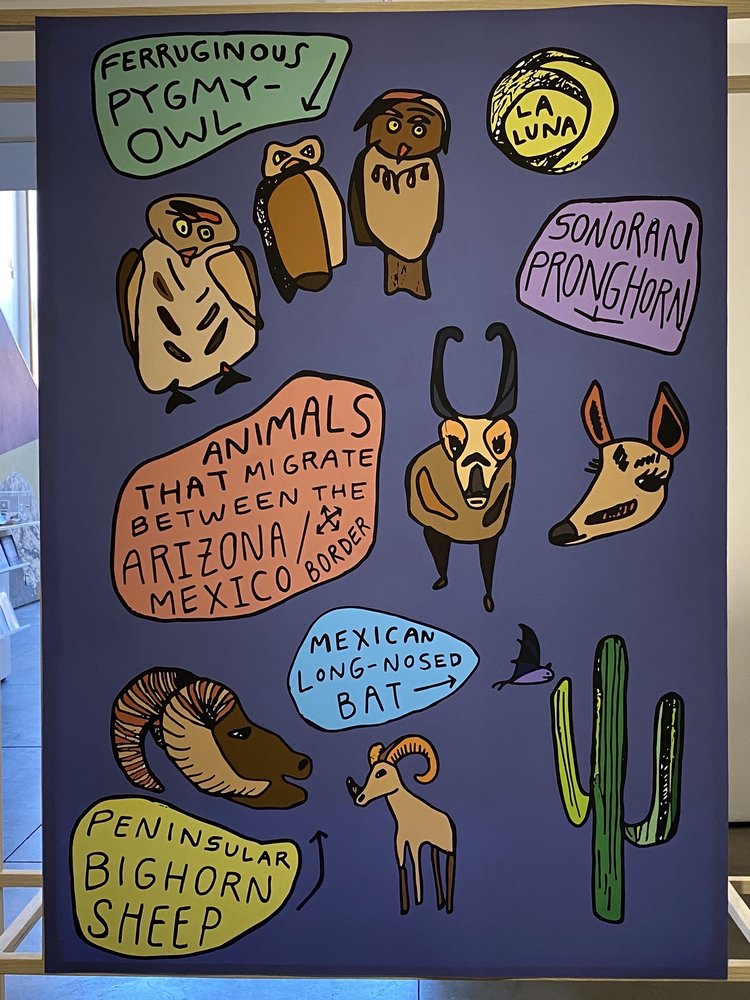 FERRUGINOUS
PYGMY-
OWL
LA
LUNA
SONORAN
PRONGHORN
ANIMALS
THAT MIGRATE
BETWEEN THE
ARIZONA/
MEXICO BORDER
MEXICAN
LONG-NOSED
BAT
PENINSULAR
BIGHORN
SHEEP